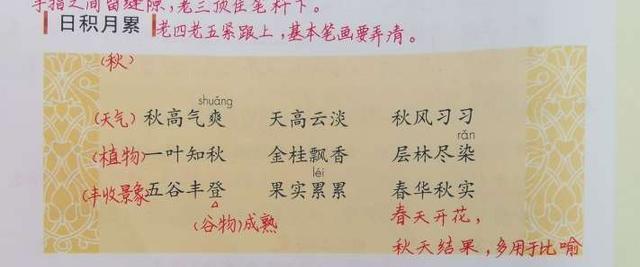 手指之间留缝隙，老三顶住笔杆下。
日积月累 老四老五紧跟上，基本笔画要弄清。
(秋)
shuǎng
(天气) 秋高气爽 天高云淡 秋风习习
rǎn
(植物) 一叶知秋 金桂飘香 层林尽染
léi
(丰收景象) 五谷丰登 果实累累 春华秋实
(谷物)成熟 春天开花，
秋天结果，多用于比喻